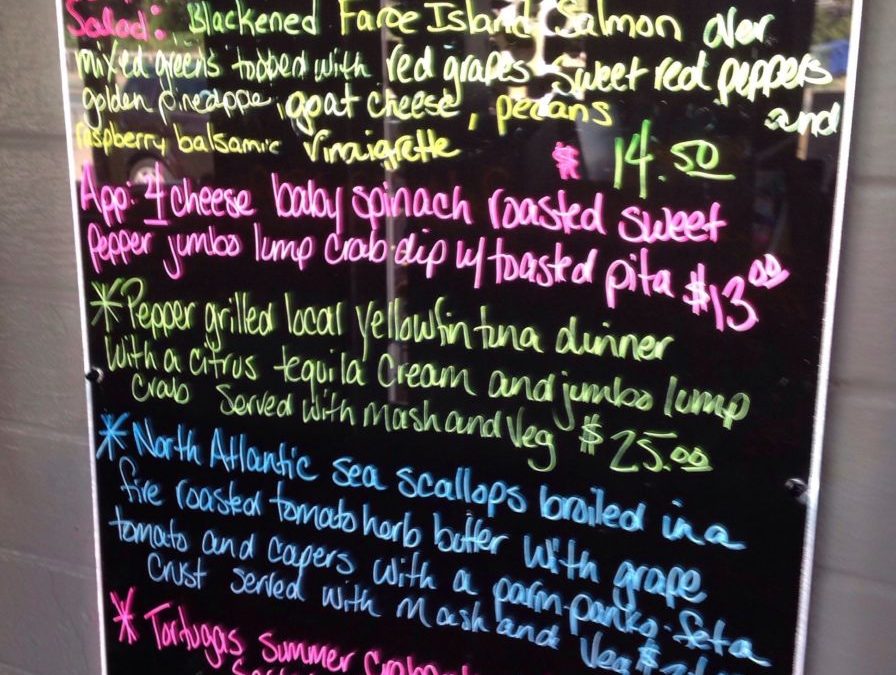 Salad: Blackened Faroe Island Salmon over
mixed greens topped with red grapes sweet red peppers
golden pineappe, goat cheese, pecans and
raspberry balsamic vinaigrette $14.50
App: 4 cheese baby spinach roasted sweet
pepper jumbo lump crab dip w/ toasted pita $13.00
* Pepper grilled local yellowfin tuna dinner
with a citrus tequila cream and jumbo lump
crab served with mash and veg $25.00
* North Atlantic sea scallops broiled in a
fire roasted tomato herb butter with grape
tomato and capers with a parm-panko-feta
crust served with mash and veg $
* Tortugas Summer